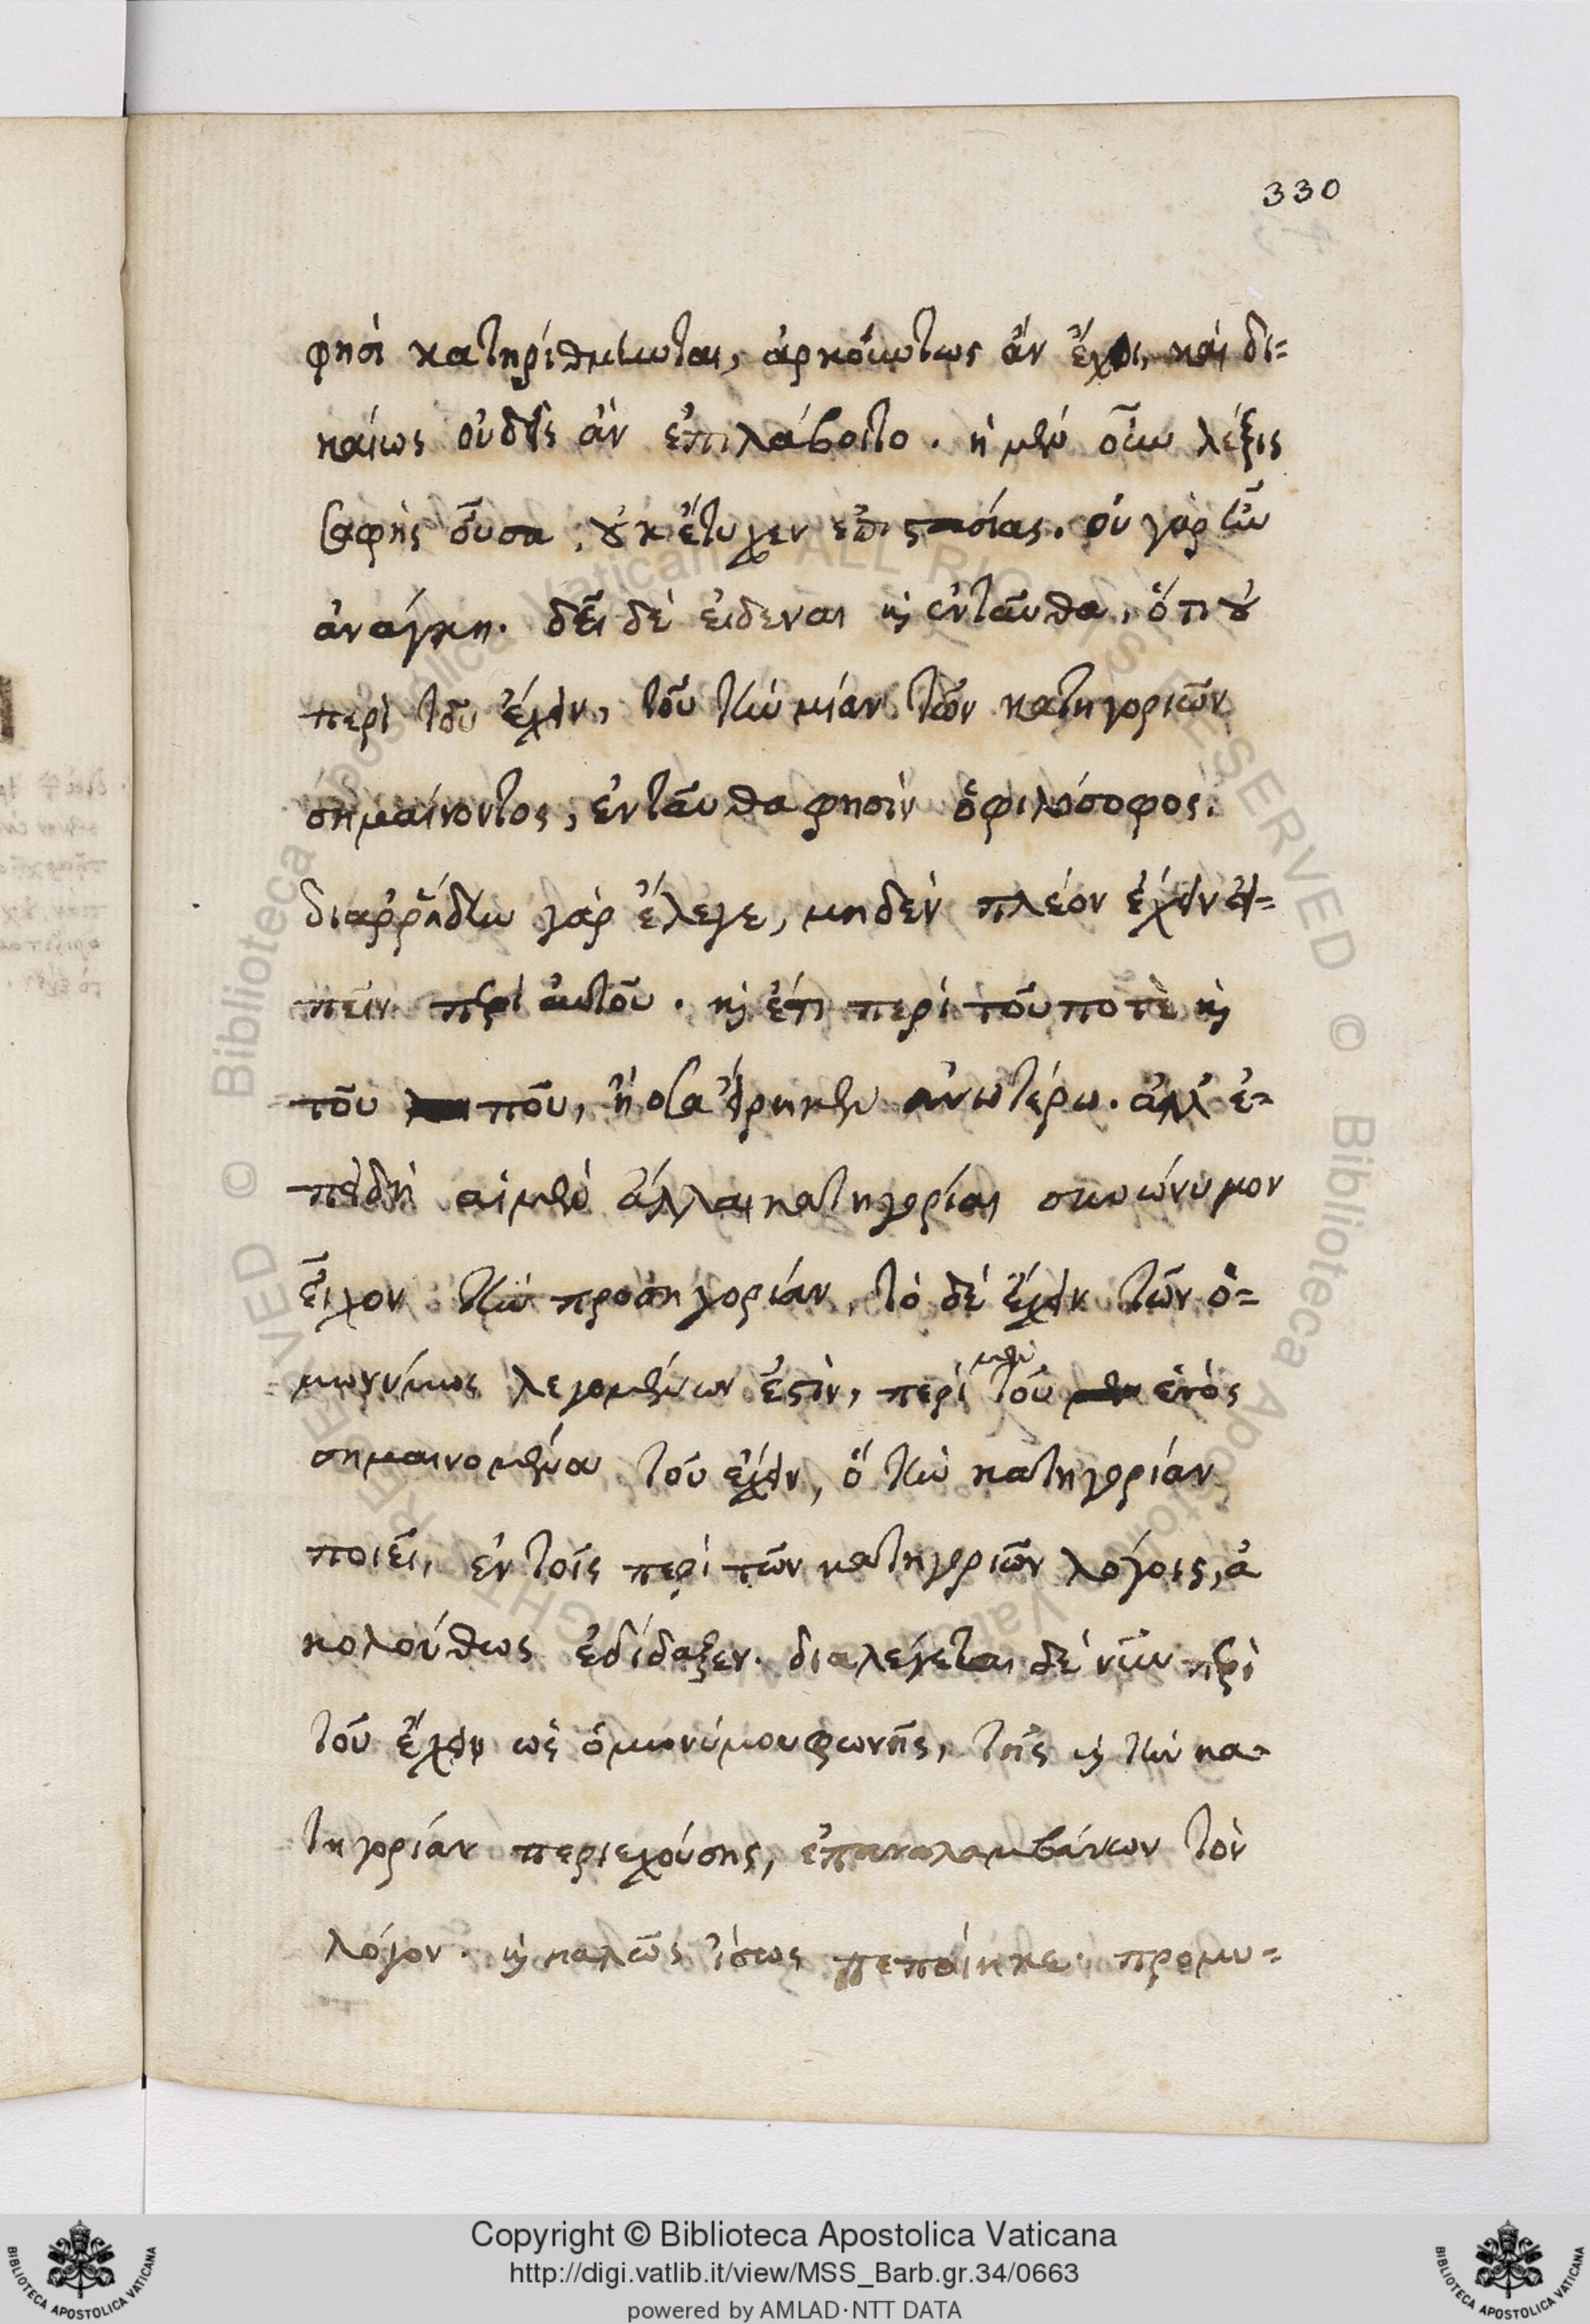 330
φησὶ κατηρίθμηνται, ἀρκούντως ἂν ἔχοι, καὶ δι=
καίως οὐδεὶς ἂν ἐπιλάβοιτο. ἡ μὲν οὖν λέξις
σαφὴς οὖσα, οὐκ ἔτυχεν ἐπιστασίας. οὐ γὰρ ἦν
ἀνάγκη. δεῖ δὲ εἰδεναι καὶ ἐνταῦθα, ὅτι οὐ
περὶ τοῦ ἔχειν, τοῦ τὴν μίαν τῶν κατηγοριῶν
σημαίνοντος, ἐνταῦθα φησὶν ὁ φιλόσοφος.
διαῤῥήδην γὰρ ἔλεγε, μηδὲν πλέον ἔχειν εἰ=
πεῖν περὶ αὐτοῦ. καὶ ἔτι περὶ τοῦ ποτὲ καὶ
τοῦ που, ἢ ὅσα εἴρηκεν ἀνωτέρω. ἀλλ' ἐ=
πειδὴ αἱ μὲν ἄλλαι κατηγορίαι συνώνυμον
εἶχον τὴν προσηγορίαν, τὸ δὲ ἔχειν τῶν ὁ=
μωνύμως λεγομένων ἐστὶν, περὶ μὲν τοῦ ἑνὸς
σημαινομένου τοῦ ἔχειν, ὃ τὴν κατηγορίαν
ποιεῖ, ἐν τοῖς περὶ τῶν κατηγοριῶν λόγοις, ἀ
κολούθως ἐδίδαξεν. διαλέγεται δὲ νῦν περὶ
τοῦ ἔχειν ὡς ὁμωνύμου φωνῆς, τῆς καὶ τὴν κα=
τηγορίαν περιεχούσης, ἐπαναλαμβάνων τὸν
λόγον. καὶ καλῶς ἴσως πεποίηκε. προμυ=
Copyright © Biblioteca Apostolica Vaticana
http://digi.vatlib.it/view/MSS_Barb.gr.34/0663
powered by AMLAD·NTT DATA